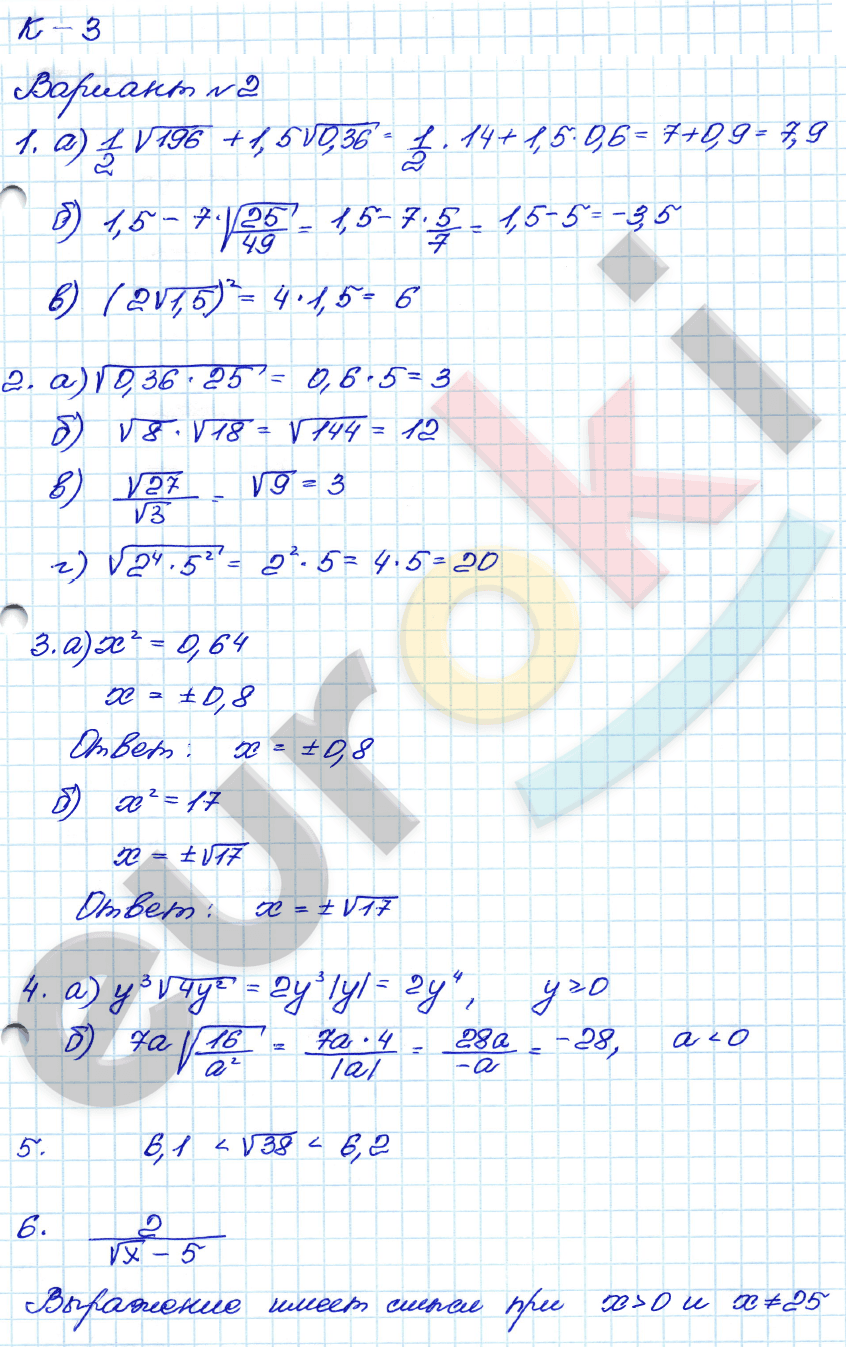 К – 3
Вариант № 2
1. а) 1/2 √196 + 1,5√0,36 = 1/2 · 14 + 1,5 · 0,6 = 7 + 0,9 = 7,9
б) 1,5 – 7 · √(25/49) = 1,5 – 7 · 5/7 = 1,5 – 5 = –3,5
в) (2√1,5)² = 4 · 1,5 = 6
2. а) √(0,36 · 25) = 0,6 · 5 = 3
б) √8 · √18 = √144 = 12
в) √27/√3 = √9 = 3
г) √(2⁴ · 5²) = 2² · 5 = 4 · 5 = 20
3. а) x² = 0,64
x = ±0,8
Ответ: x = ±0,8
б) x² = 17
x = ±√17
Ответ: x = ±√17
4. а) y³√(4y²) = 2y³|y| = 2y⁴, y ≥ 0
б) 7a√(16/a²) = 7a · 4/|a| = 28a/–a = –28, a < 0
5. 6,1 < √38 < 6,2
6. 2/(√x – 5)
Выражение имеет смысл при x > 0 и x ≠ 25
euroki